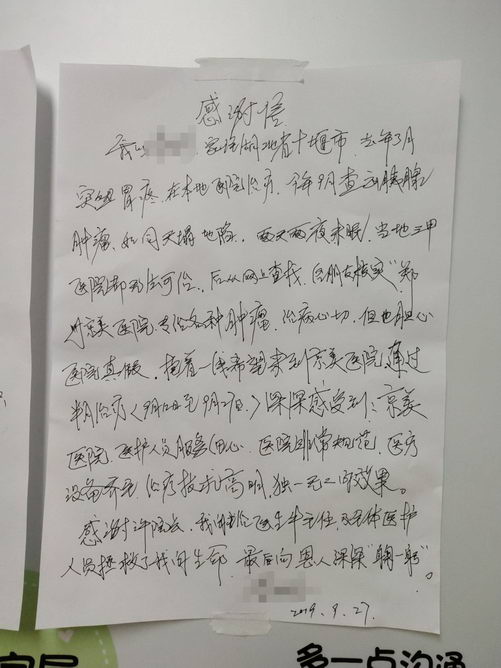 感谢信
家住湖北省十堰市，去年3月
突然胃疼，在本地医院治疗，今年9月查到胰腺
肿瘤，如同天塌地陷，两天两夜未眠！当地三甲
医院都无法可治，后从网上查找，经朋友核实"郑
州京美医院"专治各种肿瘤，治病心切，但也担心
医院真假，抱着一线希望来到京美医院，通过
半月治疗（9月12日至9月27日）深深感受到：京美
医院，医护人员服务用心，医院非常规范，医疗
设备齐全，治疗技术高明，独一无二的效果。
感谢院长，我的主治医生牛主任，及全体医护
人员拯救了我的生命，最后向恩人深深"鞠一躬"。
2019.9.27.
多一点沟通